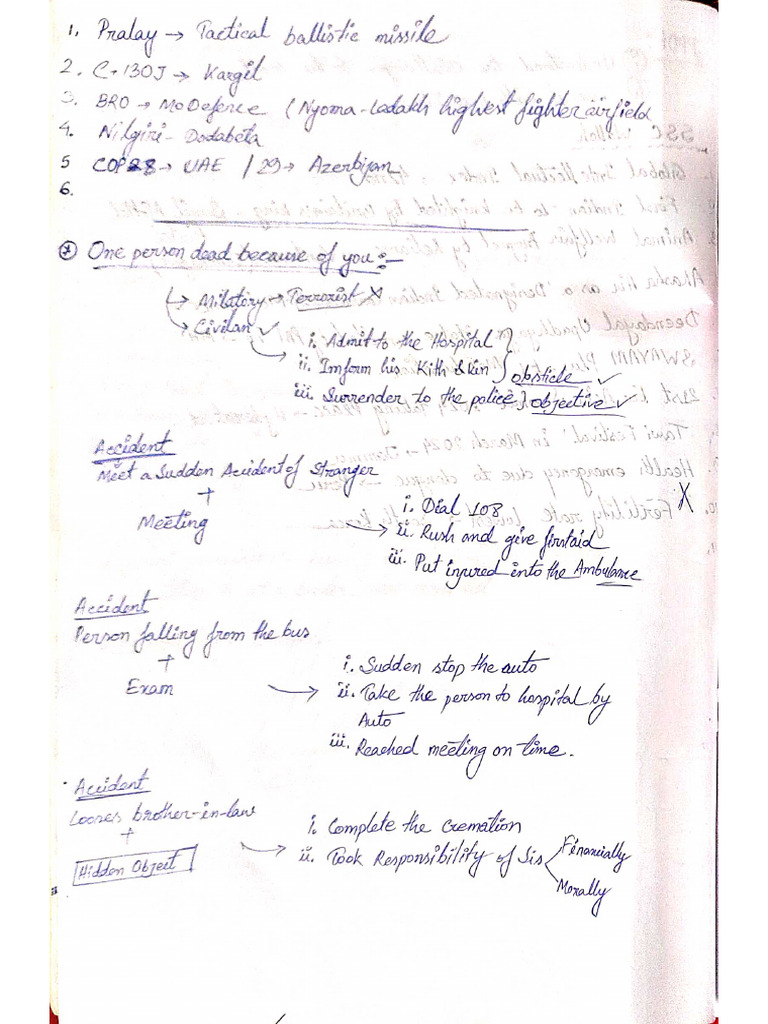 1. Pralay → Tactical ballistic missile
2. C-130J → Kargil
3. BRO → Mo Defence (Nyoma-Ladakh highest fighter airfield
4. Nilgiri - Dodabeta
5 COP28 → UAE / 29 → Azerbijan
6.
* One person dead because of you :-
↳ Military → Terrorist X
↳ Civilan ✓
i. Admit to the Hospital
ii. Imform his Kith & kin } obsticle ✓
iii. Surrender to the police } objective ✓
Accident
Meet a Sudden Accident of Stranger
+
Meeting
i. Dial 108
→ ii. Rush and give firstaid
iii. Put injured into the Ambulance
Accident
Person falling from the bus
+
Exam
i. Sudden stop the auto
→ ii. Take the person to hospital by
Auto
iii. Reached meeting on time.
Accident
Looses brother-in-law
+
Hidden Object
→ i. Complete the Cremation
ii. Took Responsibility of Sis < Financially
Morally